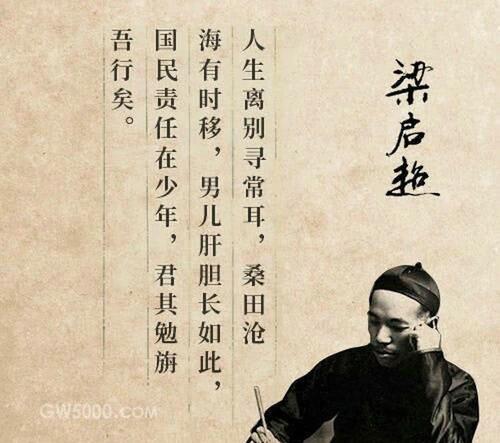 人生离别寻常耳，桑田沧
海有时移，男儿肝胆长如此，
国民责任在少年，君其勉旃
吾行矣。
梁启超
GW5000.COM